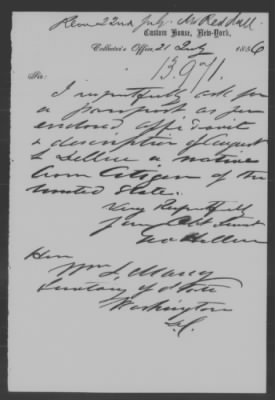 22nd July Mr Reddall
Custom House, New-York,
Collector's Office, 21 July 1856
13971.
Sir:
I respectfully ask for
a passport as per
enclosed affidavit
& description of August
a native
born Citizen of the
United States.
Very Respectfully
Your Obt Servt
Hon
Wm L Marcy
Secretary of State
Washington
D.C.